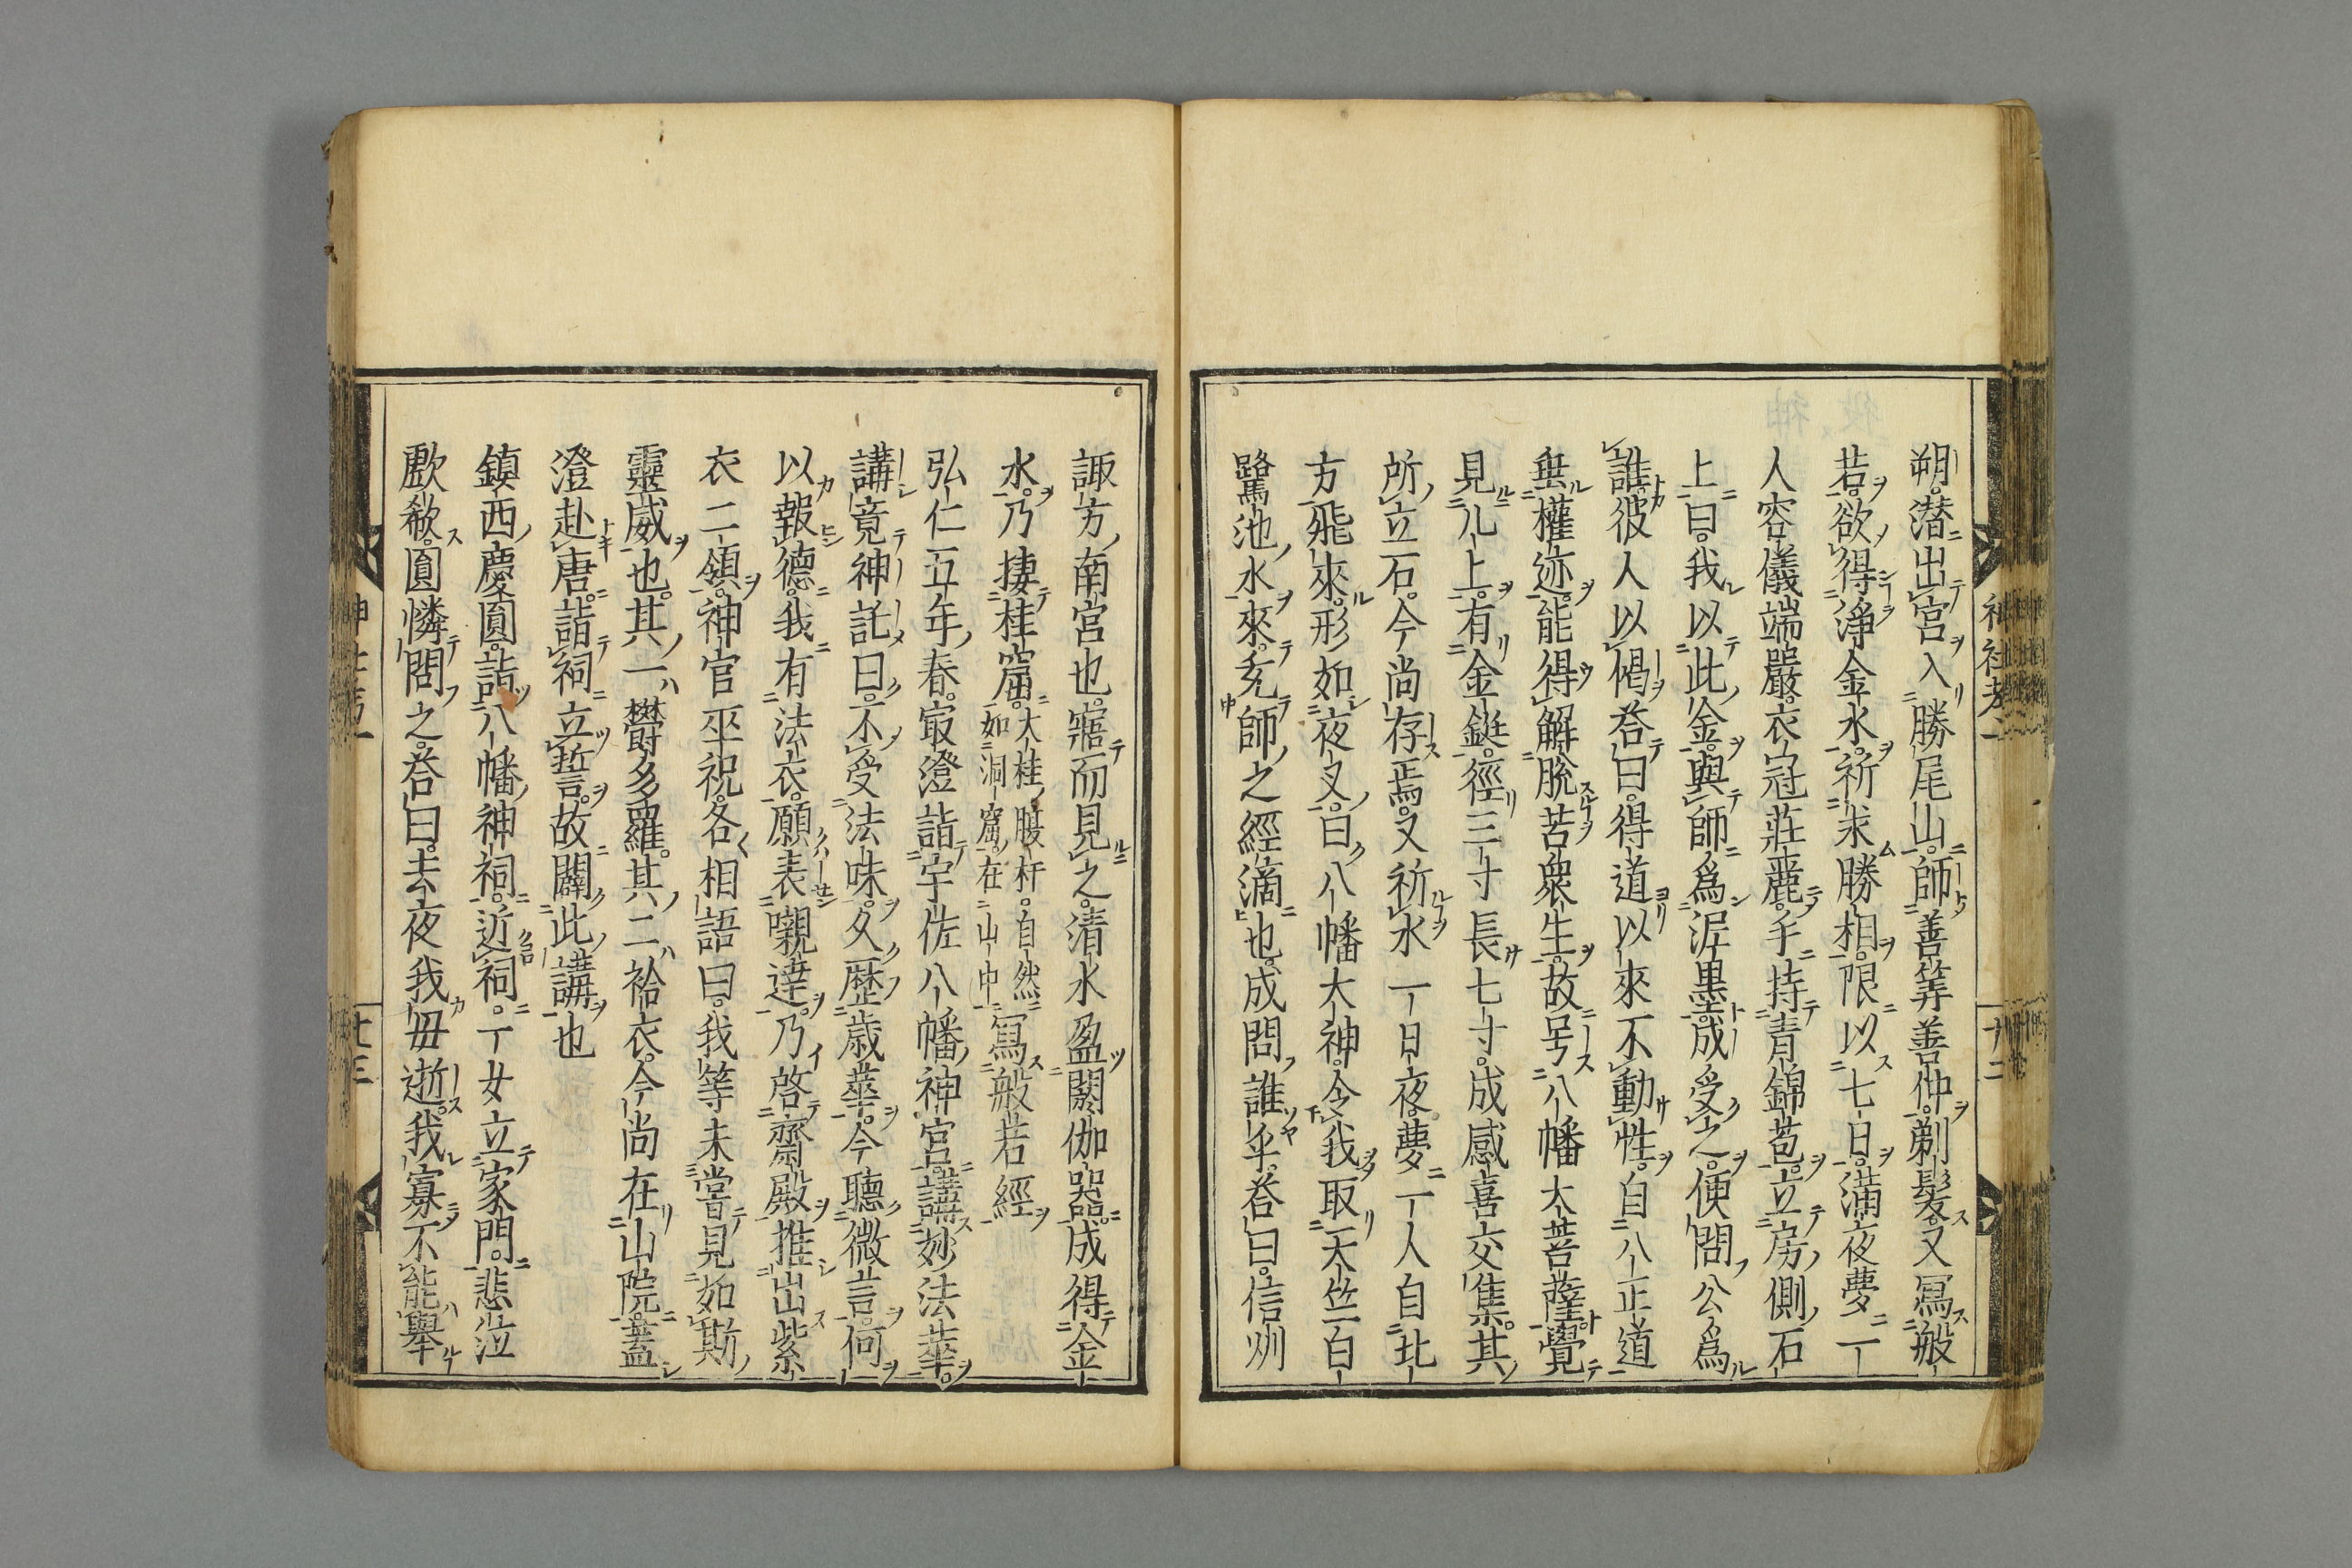 朔潜出宮入勝尾山師善筭善仲剃髮又寫般
若欲得淨金水祈求勝相限以七日滿夜夢一
人容儀端嚴衣冠莊麗手持青錦苞立房側石
上曰我以此金與師爲泥墨成受之便問公爲
誰彼人以偈荅曰得道以來不動性自八正道
垂權迹能得解脫苦衆生故号八幡大菩薩覺
見几上有金鋌徑三寸長七寸成感喜交集其
所立石今尚存焉又祈水一日夜夢一人自北
方飛來形如夜叉曰八幡大神令我取天竺白
鷺池水來充師之經滴也成問誰乎荅曰信州
諏方南宮也寤而見之清水盈閼伽器成得金
水乃捿桂窟大桂腹杆自然如洞窟在山中寫般若經
弘仁五年春㝡澄詣宇佐八幡神宮講妙法華
講竟神託曰不受法味久歷歲華今聽微言何
以報德我有法衣願表嚫達乃啓齋殿推出紫
衣二領神官巫祝各相語曰我等未嘗見如斯
靈威也其一欝多羅其二袷衣今尚在山院蓋
澄赴唐詣祠立誓故關此講也
鎮西慶圓詣八幡神祠近祠一女立家門悲泣
歔欷圓憐問之荅曰去夜我毋逝我寡不能舉
神社考一
十二
神社考一
十三